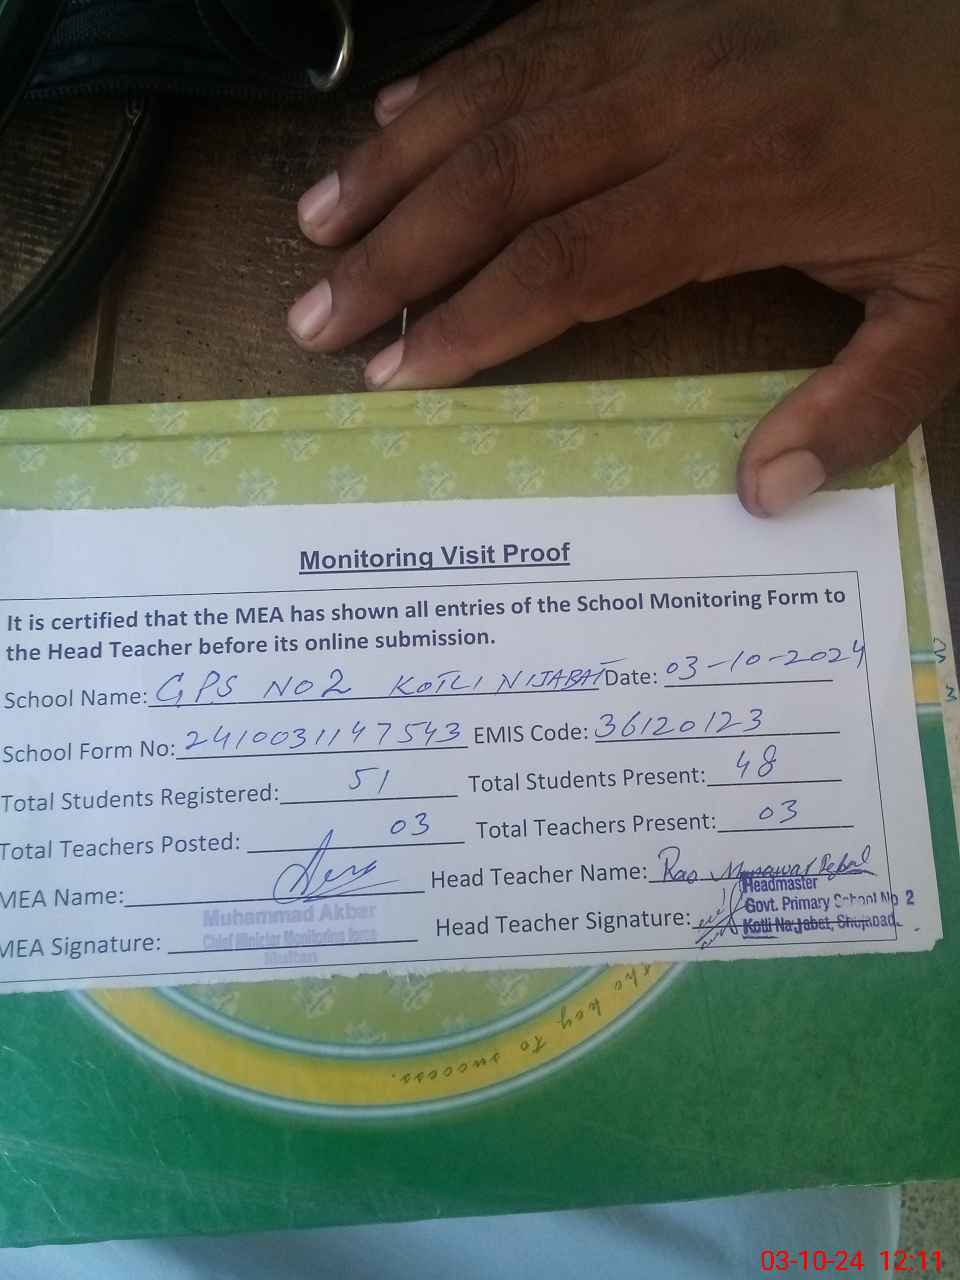 Monitoring Visit Proof
It is certified that the MEA has shown all entries of the School Monitoring Form to
the Head Teacher before its online submission.
School Name: GPS NO 2 KOTLI NIJABAT Date: 03-10-2024
School Form No: 2410031147543 EMIS Code: 36120123
Total Students Registered: 51 Total Students Present: 48
Total Teachers Posted: 03 Total Teachers Present: 03
MEA Name: Head Teacher Name: Rao
Headmaster
Muhammad Akbar
Govt. Primary School No 2
MEA Signature: Head Teacher Signature:
Kotli Najabat, Shujabad.
Chief Minister Monitoring force
Multan
the key to success.
03-10-24 12:11